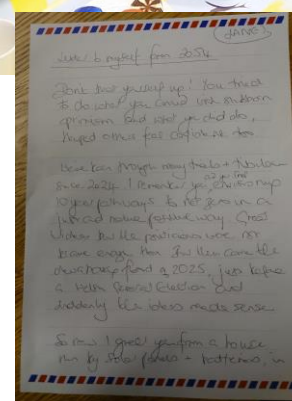 (JANE)
Letter to myself from 2054
Don't beat yourself up! You tried
to do what you could with stubborn
optimism and what you did do,
helped others feel confident too
been through many trials + tribulations
since 2024. I remember you envisioning
10 year pathways to net zero in a
just and nature positive way. Great
but the politicians were not
brave enough then. But then came the
in 2025, just before
a General Election and
suddenly the ideas made sense.
So now I greet you from a house
run by solar panels + batteries, in